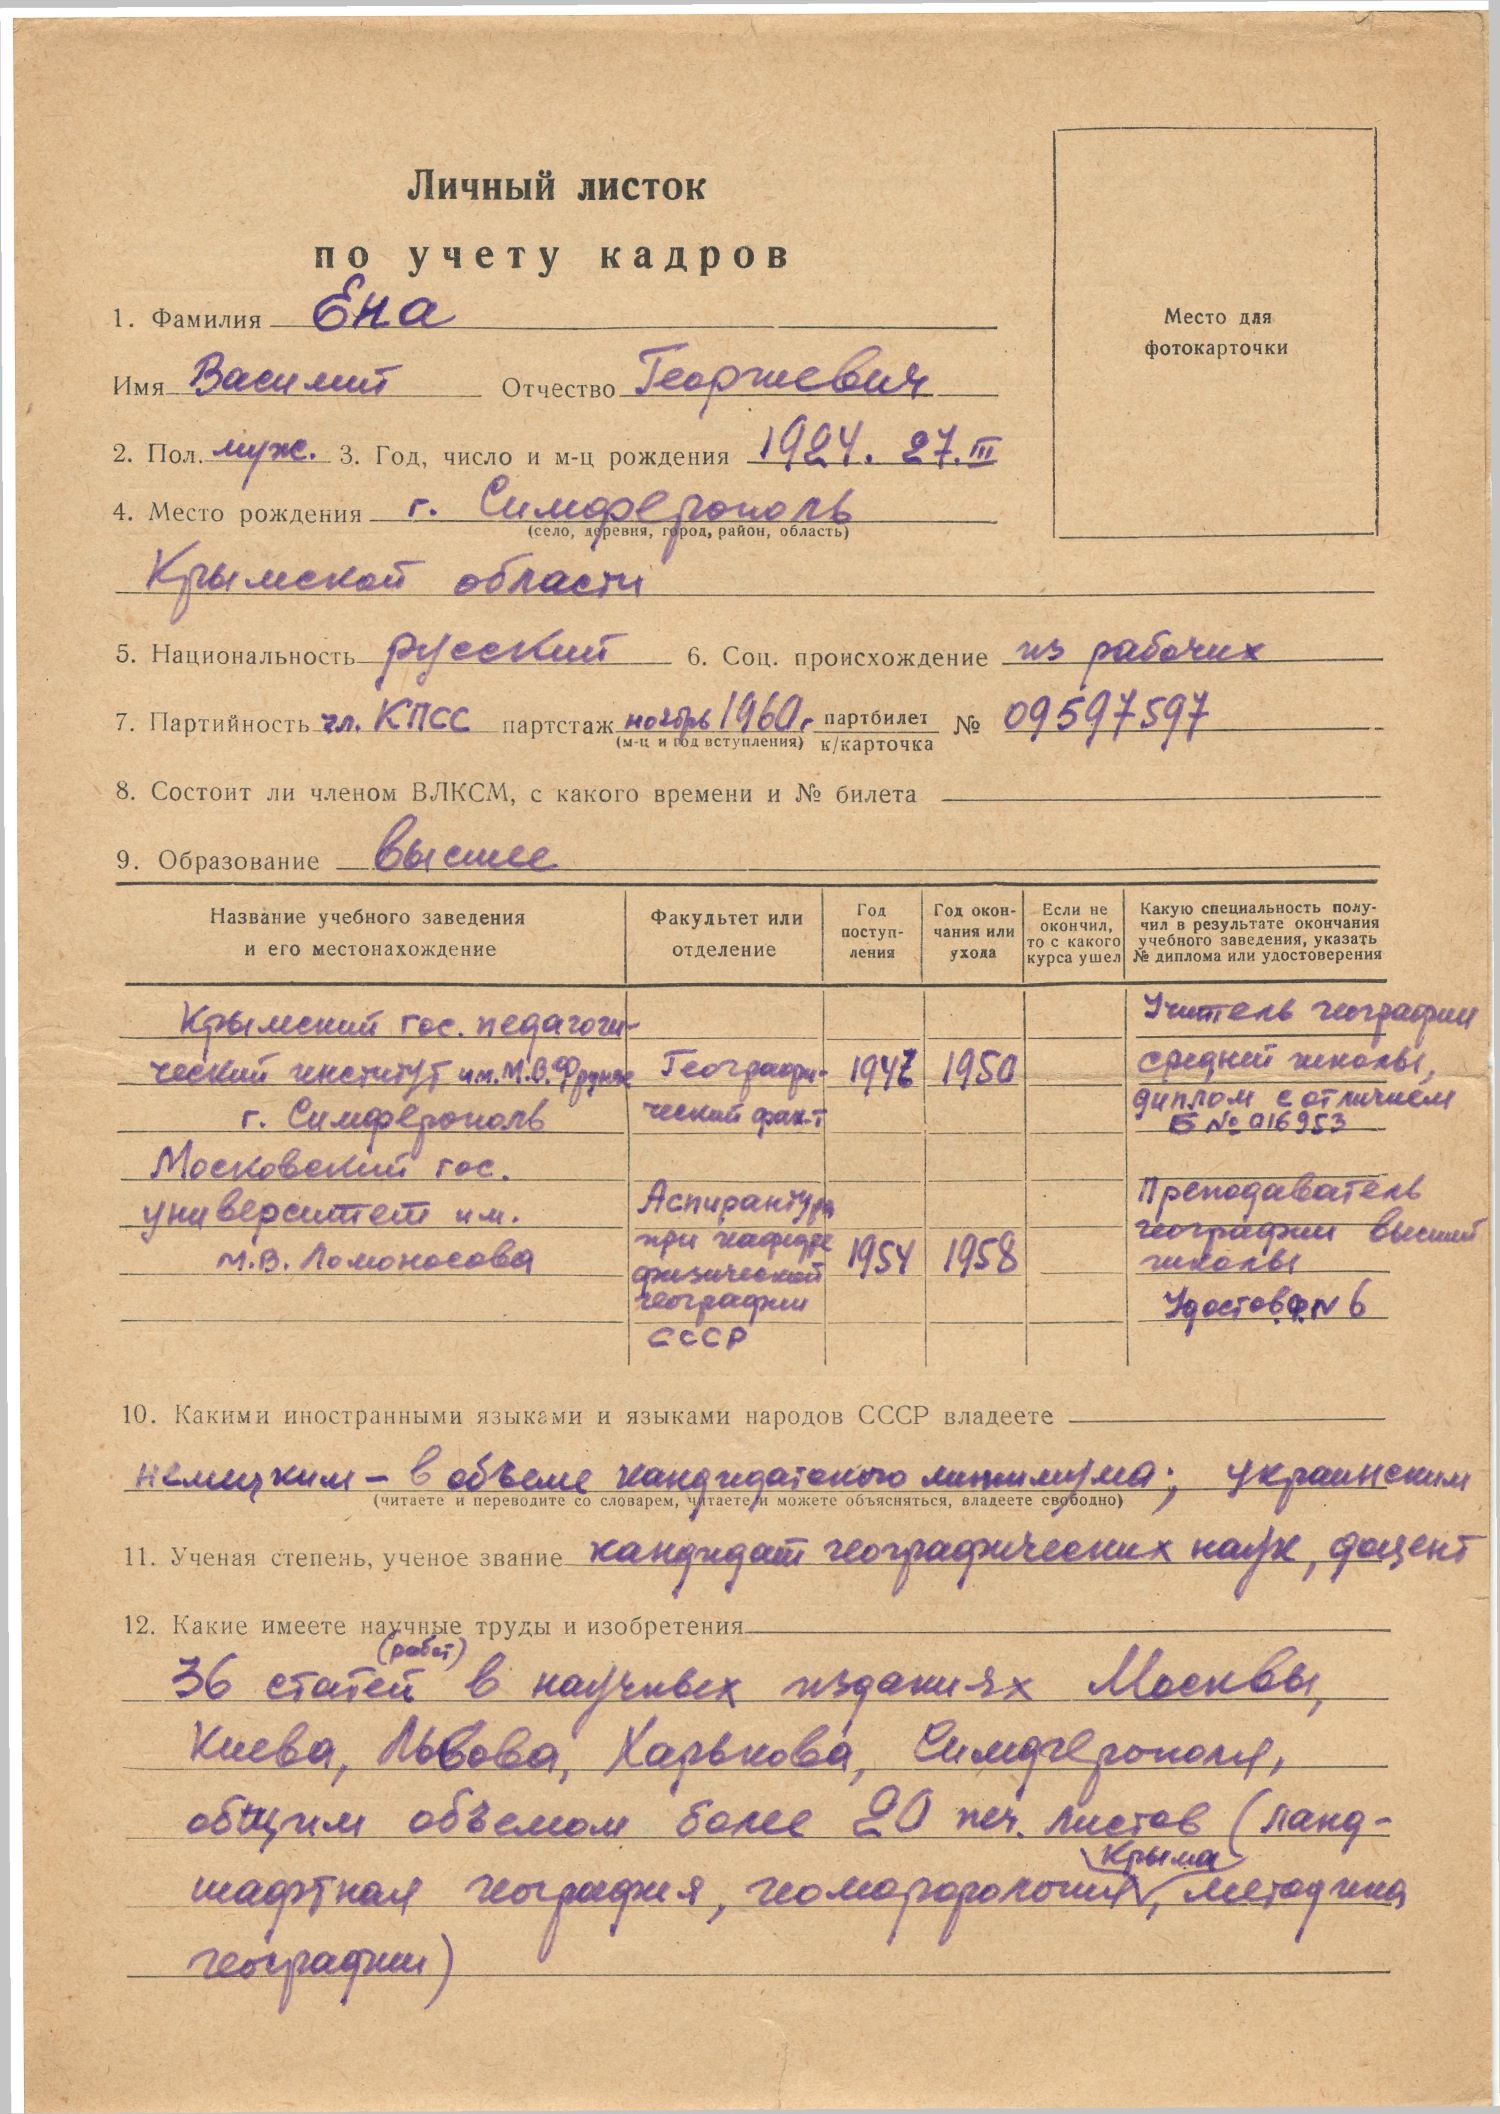 Личный листок
по учету кадров
Место для
фотокарточки
1. Фамилия Ена
Имя Василий Отчество Георгиевич
2. Пол. муж. 3. Год, число и м-ц рождения 1924. 27.III
4. Место рождения г. Симферополь
(село, деревня, город, район, область)
Крымской области
5. Национальность русский 6. Соц. происхождение из рабочих
7. Партийность чл. КПСС партстаж ноябрь 1960г. партбилет № 09597597
(м-ц и год вступления) к/карточка
8. Состоит ли членом ВЛКСМ, с какого времени и № билета
9. Образование высшее
Название учебного заведения
и его местонахождение
Факультет или
отделение
Год
поступ-
ления
Год окон-
чания или
ухода
Если не
окончил,
то с какого
курса ушел
Какую специальность полу-
чил в результате окончания
учебного заведения, указать
№ диплома или удостоверения
Крымский гос. педагоги-
ческий институт им. М.В. Фрунзе
г. Симферополь
Географи-
ческий фак-т
1947
1950
Учитель географии
средней школы,
диплом с отличием
Б № 016953
Московский гос.
университет им.
М.В. Ломоносова
Аспирантура
при кафедре
физической
географии
СССР
1954
1958
Преподаватель
географии высшей
школы
Удостов. № 6
10. Какими иностранными языками и языками народов СССР владеете
немецким – в объеме кандидатского минимума; украинским
(читаете и переводите со словарем, читаете и можете объясняться, владеете свободно)
11. Ученая степень, ученое звание кандидат географических наук, доцент
12. Какие имеете научные труды и изобретения
(работ)
36 статей в научных изданиях Москвы,
Киева, Львова, Харькова, Симферополя,
общим объемом более 20 печ. листов (ланд-
Крыма
шафтная география, геоморфология, методика
географии)